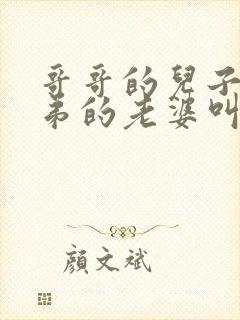 哥哥的兒子
弟的老婆叫
顏文斌